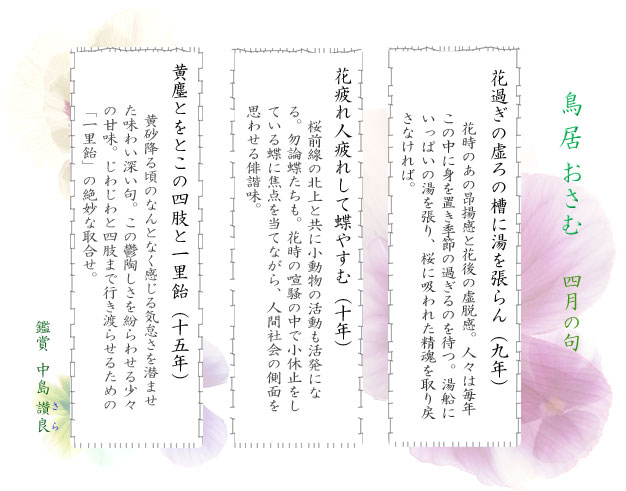 鳥居 おさむ　四月の句
花過ぎの虚ろの槽に湯を張らん（九年）
花時のあの昂揚感と花後の虚脱感。人々は毎年
この中に身を置き季節の過ぎるのを待つ。湯船に
いっぱいの湯を張り、桜に吸われた精魂を取り戻
さなければ。
花疲れ人疲れして蝶やすむ（十年）
桜前線の北上と共に小動物の活動も活発にな
る。勿論蝶たちも。花時の喧騒の中で小休止をし
ている蝶に焦点を当てながら、人間社会の側面を
思わせる俳諧味。
黄塵とをとこの四肢と一里飴（十五年）
黄砂降る頃のなんとなく感じる気怠さを潜ませ
た味わい深い句。この鬱陶しさを紛らわせる少々
の甘味。じわじわと四肢まで行き渡らせるための
「一里飴」の絶妙な取合せ。
鑑賞 中島 讃良
さら